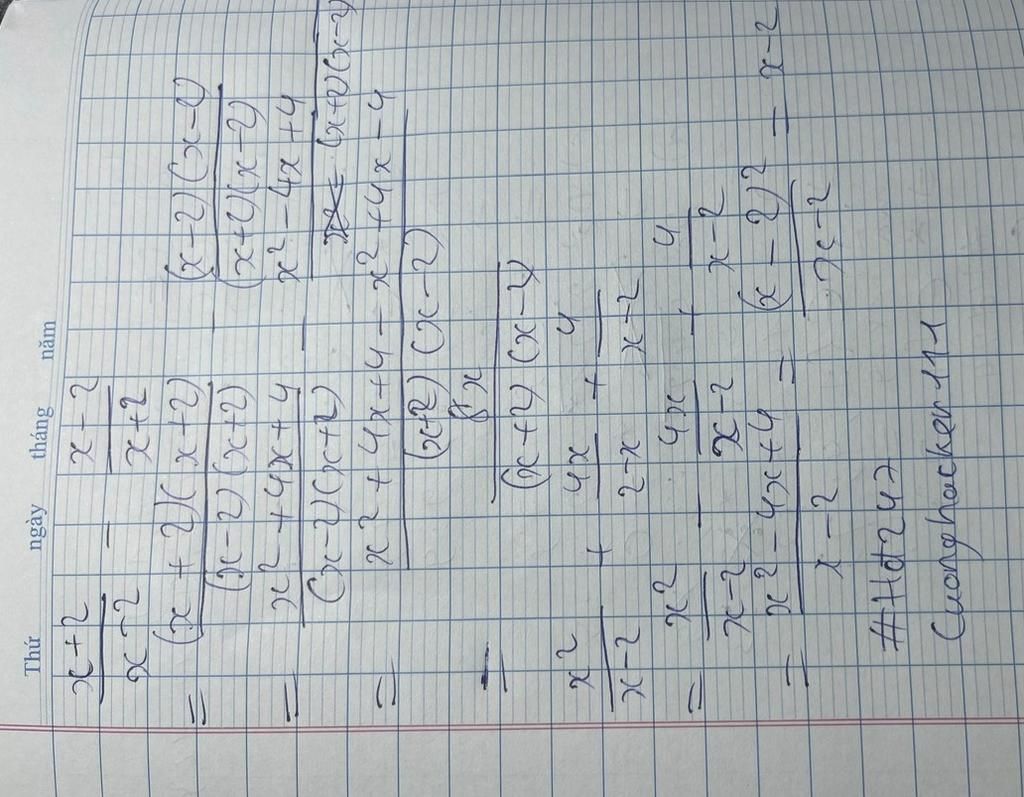 Thứ ngày tháng năm
\frac{x+2}{x-2} - \frac{x-2}{x+2}
= \frac{(x+2)(x+2)}{(x-2)(x+2)} - \frac{(x-2)(x-2)}{(x+2)(x-2)}
= \frac{x^2+4x+4}{(x-2)(x+2)} - \frac{x^2-4x+4}{(x+2)(x-2)}
= \frac{x^2+4x+4-x^2+4x-4}{(x+2)(x-2)}
- \frac{8x}{(x+2)(x-2)}
\frac{x^2}{x-2} + \frac{4x}{2-x} + \frac{4}{x-2}
= \frac{x^2}{x-2} - \frac{4x}{x-2} + \frac{4}{x-2}
= \frac{x^2-4x+4}{x-2} = \frac{(x-2)^2}{x-2} = x-2
#Hd247
Cuonghacker111